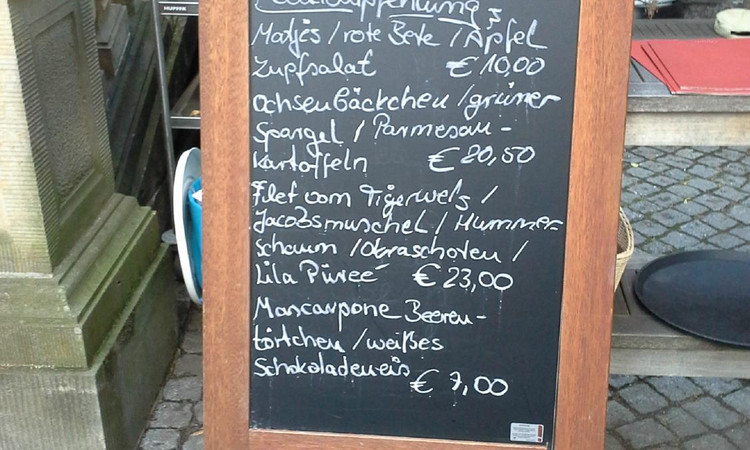 HUPFER
Matjes / rote Bete / Apfel
Zupfsalat € 10,00
Ochsenbäckchen / grüner
Spargel / Parmesan-
kartoffeln € 20,50
Filet vom Tigerwels /
Jacobsmuschel / Hummer
schaum / Okraschoten /
Lila Püreé € 23,00
Mascarpone Beeren-
törtchen / weißes
Schokoladeneis
€ 7,00